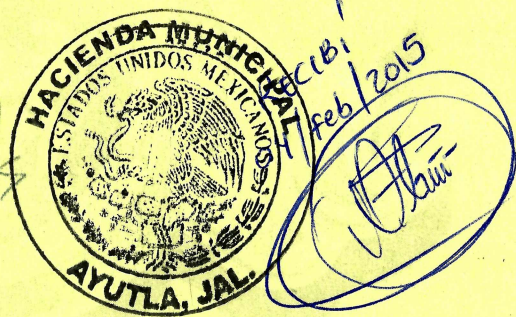 HACIENDA MUNICIPAL
ESTADOS UNIDOS MEXICANOS
AYUTLA, JAL.
RECIBÍ
4/feb/2015